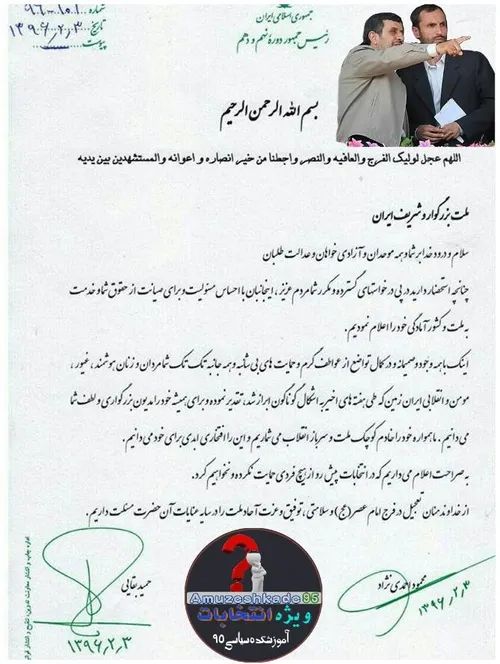 شماره ۹۶-۱۰۱
تاریخ ۱۳۹۶,۲,۳
پیوست
جمهوری اسلامی ایران
رئیس جمهور دوره نهم و دهم
بسم الله الرحمن الرحیم
اللهم عجل لولیک الفرج والعافیه والنصر واجعلنا من خیر انصاره و اعوانه والمستشهدین بین یدیه
ملت بزرگوار و شریف ایران
سلام و درود خدا بر شما و همه موحدان و آزادی خواهان و عدالت طلبان
چنانچه استحضار دارید در پی درخواستهای گسترده و مکرر شما مردم عزیز، اینجانبان با احساس مسئولیت و برای صیانت از حقوق شما و خدمت
به ملت و کشور آمادگی خود را اعلام نمودیم.
اینک با همه وجود و صمیمانه و در کمال تواضع از عواطف گرم و حمایت های بی شائبه و همه جانبه تک تک شما مردان و زنان هوشمند، غیور،
مومن و انقلابی ایران زمین که طی هفته های اخیر به اشکال گوناگون ابراز شد، تقدیر نموده و برای همیشه خود را مدیون بزرگواری و لطف شما
می دانیم. ما همواره خود را خادم کوچک ملت و سرباز انقلاب می شماریم و این را افتخاری ابدی برای خود می دانیم.
به صراحت اعلام می داریم که در انتخابات پیش رو از هیچ فردی حمایت نکرده و نخواهیم کرد.
از خداوند منان تعجیل در فرج امام عصر(عج) و سلامتی، توفیق و عزت آحاد ملت را در سایه عنایات آن حضرت مسئلت داریم.
محمود احمدی نژاد
۱۳۹۶,۲,۳
حمید بقایی
۱۳۹۶,۲,۳
?
Amuzeshkade95
ویژه انتخابات
آموزشکده سیاسی ۹۵